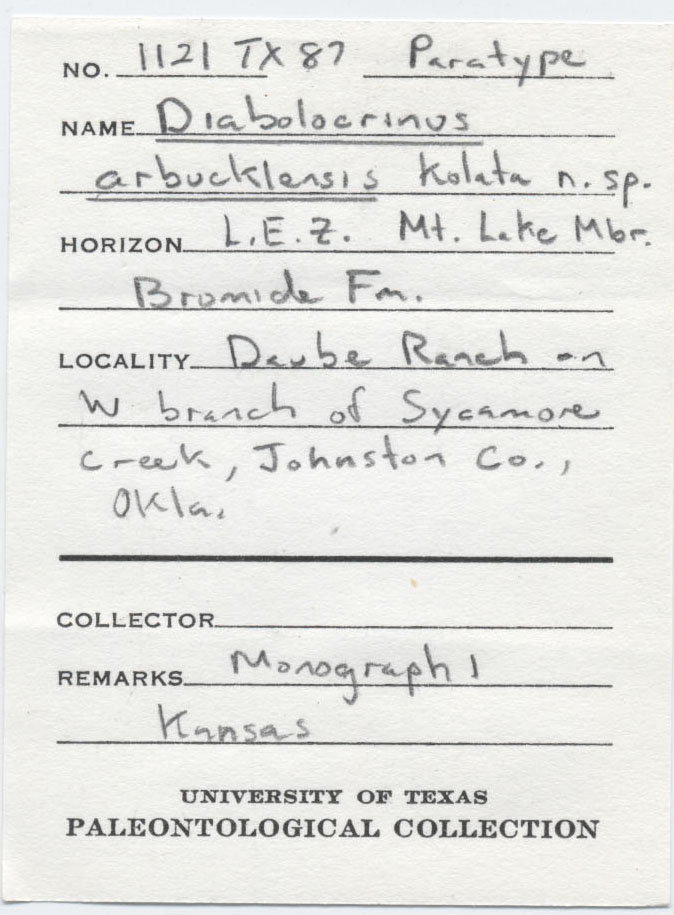 NO. 1121 TX 87 Paratype
NAME Diabolocrinus
arbucklensis Kolata n. sp.
HORIZON L.E.Z. Mt. Lake Mbr.
Bromide Fm.
LOCALITY Daube Ranch on
W branch of Sycamore
Creek, Johnston Co.,
Okla.
COLLECTOR
REMARKS Monograph 1
Kansas
UNIVERSITY OF TEXAS
PALEONTOLOGICAL COLLECTION